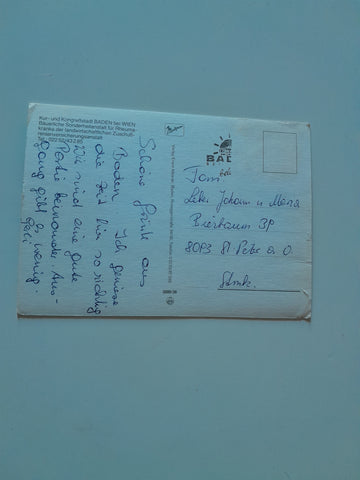 Kur- und Kongreßstadt BADEN bei WIEN
Bäuerliche Sonderheilanstalt für Rheuma-
kranke der landwirtschaftlichen Zuschuß-
rentenversicherungsanstalt
Schöne Grüße aus
Baden. Ich geniesse
die Zeit hier so richtig
Wir sind eine gute
Partie beinander. Aus-
gang gibt's wenig.
BAD
Fam
Johann u Maria
Bierbaum
8093 St Peter a. O.
Stmk.